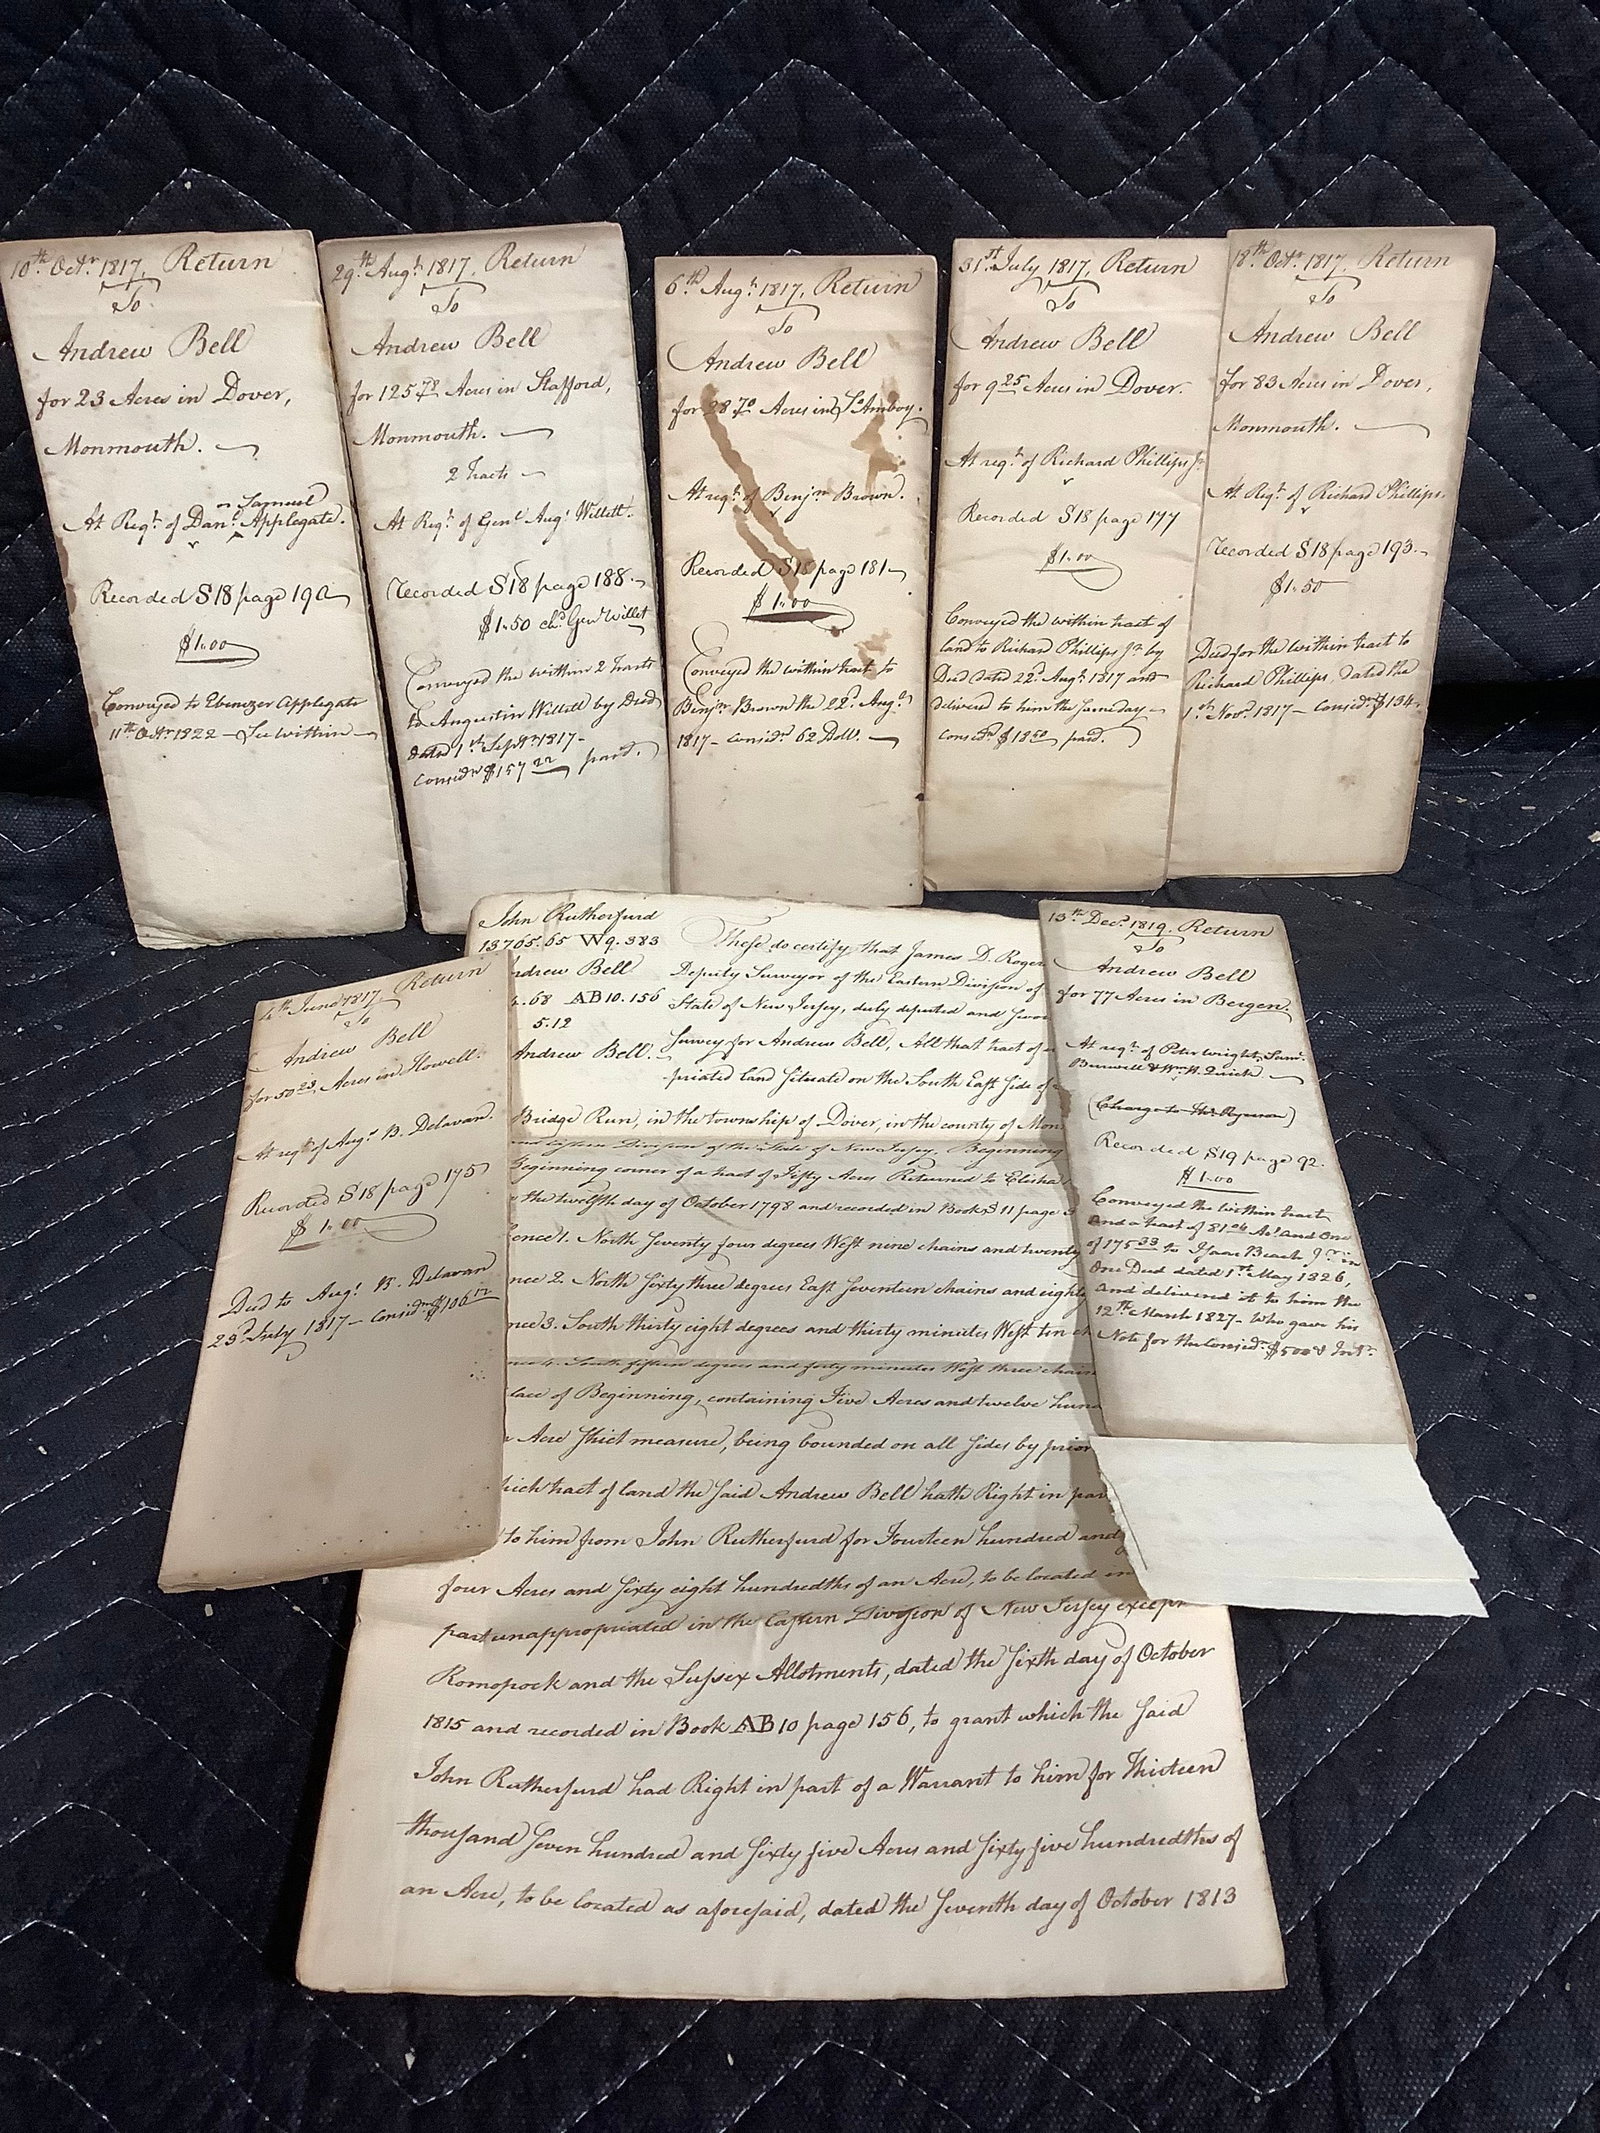 10th Octr 1817. Return
To
Andrew Bell
for 23 Acres in Dover,
Monmouth.
or Samuel
At Reqt of Danl Applegate.
Recorded S18 page 190
$1.00
Conveyed to Ebenezer Applegate
11th Octr 1822 – See within
29th Augt 1817. Return
To
Andrew Bell
for 125 Acres in Stafford,
Monmouth.
2 Tracts
At Reqt of Genl Augs Willett.
recorded S18 page 188.
$1.50 chd Genl Willet
Conveyed the within 2 Tracts
to Augustin Willett by Deed
dated 1st Septr 1817 –
considn $157 22 paid.
6th Augt 1817. Return
To
Andrew Bell
for 28 70 Acres in So Amboy.
At reqt of Benjn Brown.
Recorded S18 page 181
$1.00
Conveyed the within tract to
Benjn Brown the 22d Augt
1817 – considn 62 Doll.
31st July 1817. Return
To
Andrew Bell
for 9 25 Acres in Dover.
At reqt of Richard Phillips Jr
Recorded S18 page 177
$1.00
Conveyed the within tract of
land to Richard Phillips Jr by
Deed dated 22d Augt 1817 and
delivered to him the same day –
considn $18 50 paid.
18th Octr 1817. Return
To
Andrew Bell
for 83 Acres in Dover,
Monmouth.
At Reqt of Richard Phillips.
recorded S18 page 193.
$1.50
Deed for the within tract to
Richard Phillips, dated the
1st Novr 1817 – considn $134
4th June 1817 Return
To
Andrew Bell
for 50 23 Acres in Howell.
At reqt of Augs B. Delavan.
Recorded S18 page 175
$1.00
Deed to Augs B. Delavan
23d July 1817 – considn $106 12
John Rutherfurd
13765.65 W9.383
Andrew Bell
4.68 AB10.156
5.12
Andrew Bell.
These do certify that James D. Roger
Deputy Surveyor of the Eastern Division of
State of New Jersey, duly deputed and swo
Survey for Andrew Bell, All that tract of
priated land situate on the South East side of
Bridge Run, in the township of Dover, in the county of Mon
and Eastern Division of the State of New Jersey. Beginning
Beginning corner of a tract of Fifty Acres Returned to Elisha
the twelfth day of October 1798 and recorded in Book S11 page
ence 1. North Seventy four degrees West nine chains and twenty
nce 2. North Sixty three degrees East Seventeen chains and eighty
nce 3. South thirty eight degrees and thirty minutes West ten ch
nce 4. South fifteen degrees and forty minutes West three chain
lace of Beginning, containing Five Acres and twelve hund
Acre strict measure, being bounded on all sides by prior
hich tract of land the said Andrew Bell hath Right in par
to him from John Rutherfurd for Fourteen hundred and
four Acres and Sixty eight hundredths of an Acre, to be located in
part unappropriated in the Eastern Division of New Jersey except
Romopock and the Sussex Allotments, dated the Sixth day of October
1815 and recorded in Book AB10 page 156, to grant which the said
John Rutherfurd had Right in part of a Warrant to him for Thirteen
thousand Seven hundred and Sixty five Acres and Sixty five hundredths of
an Acre, to be located as aforesaid, dated the Seventh day of October 1813
13th Decr 1819. Return
To
Andrew Bell
for 77 Acres in Bergen.
At reqt of Peter Wright, Saml
Burwell & Wm H.
(Charge to Thos Ryerson)
Recorded S19 page 92.
$1.00
Conveyed the within tract
and a tract of 81 As and one
of 175 33 to Isaac Beach Jr in
One Deed dated 1st May 1826,
and delivered it to him the
12th March 1827 – who gave his
Note for the considn $500 & Intt